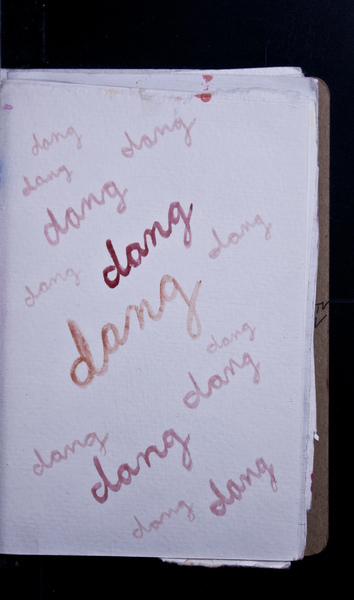 dang
dang
dang
dang
dang
dang
dang
dang
dang
dang
dang
dang
dang
dang